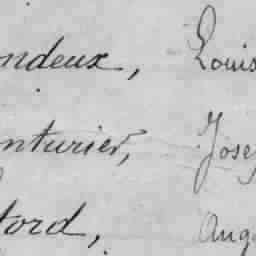 ndeux, Louis
nturier, Jose
tord, Aug